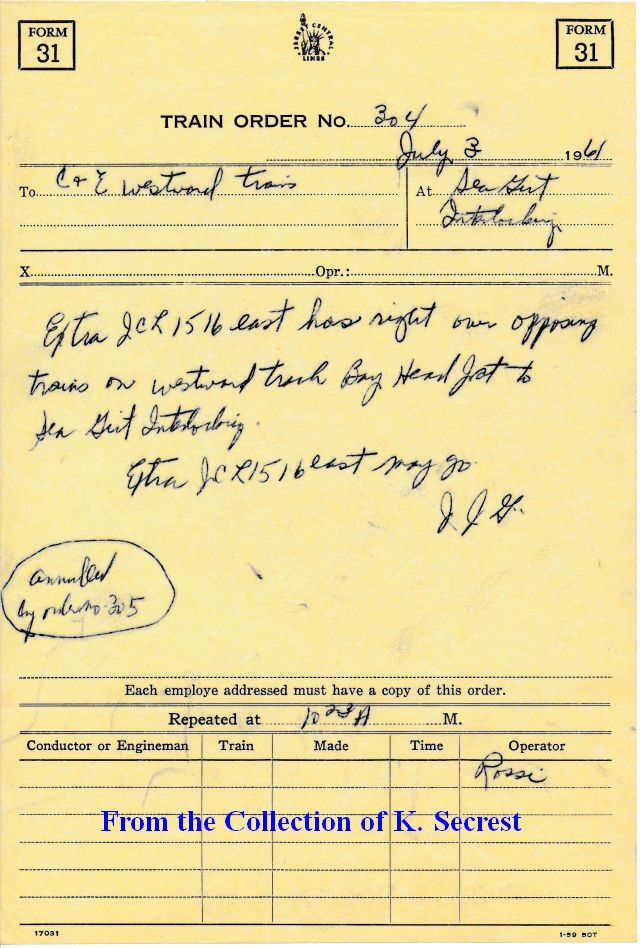 FORM
31
JERSEY CENTRAL
LINES
FORM
31
TRAIN ORDER No. 304
July 3 1961
To C & E Westward trains
At Sea Girt
Interlocking
X Opr.: M.
Extra JCL 1516 east has right over opposing
trains on westward track Bay Head Jct to
Sea Girt Interlocking.
Extra JCL 1516 east may go.
J J G.
annulled
by order no. 305
Each employe addressed must have a copy of this order.
Repeated at 10 23 A M.
Conductor or Engineman Train Made Time Operator
Rossi
From the Collection of K. Secrest
17031 1-59 BOT